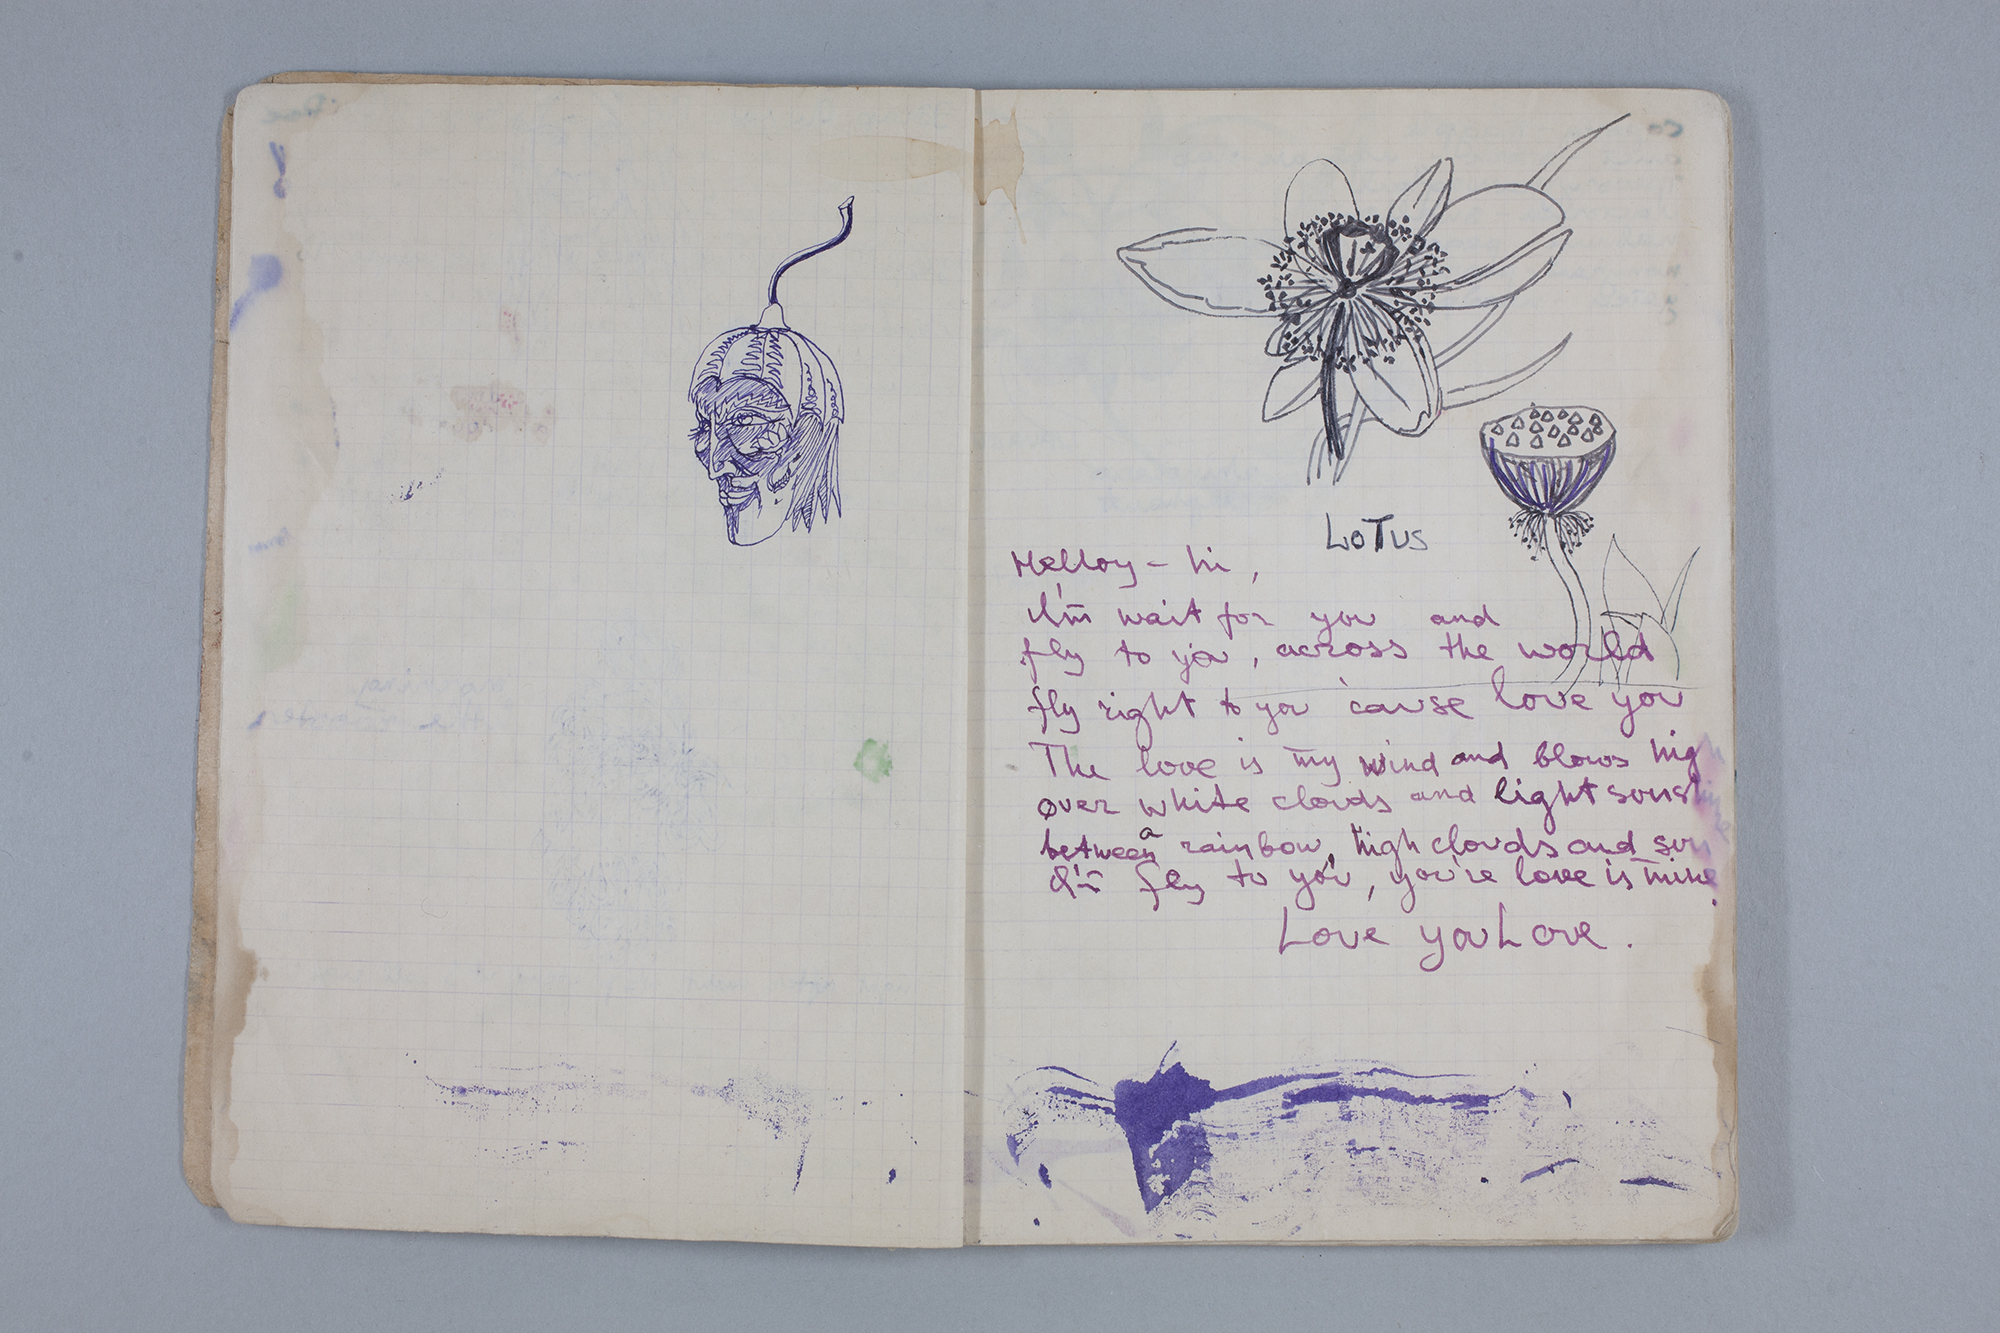 LOTUS
Helloy – hi,
I'm wait for you and
fly to you, across the world
fly right to you 'cause love you
The love is my wind and blows hig
over white clouds and light sunsh
between a rainbow, high clouds and sun
I'm fly to you, you're love is mine.
Love you Love.